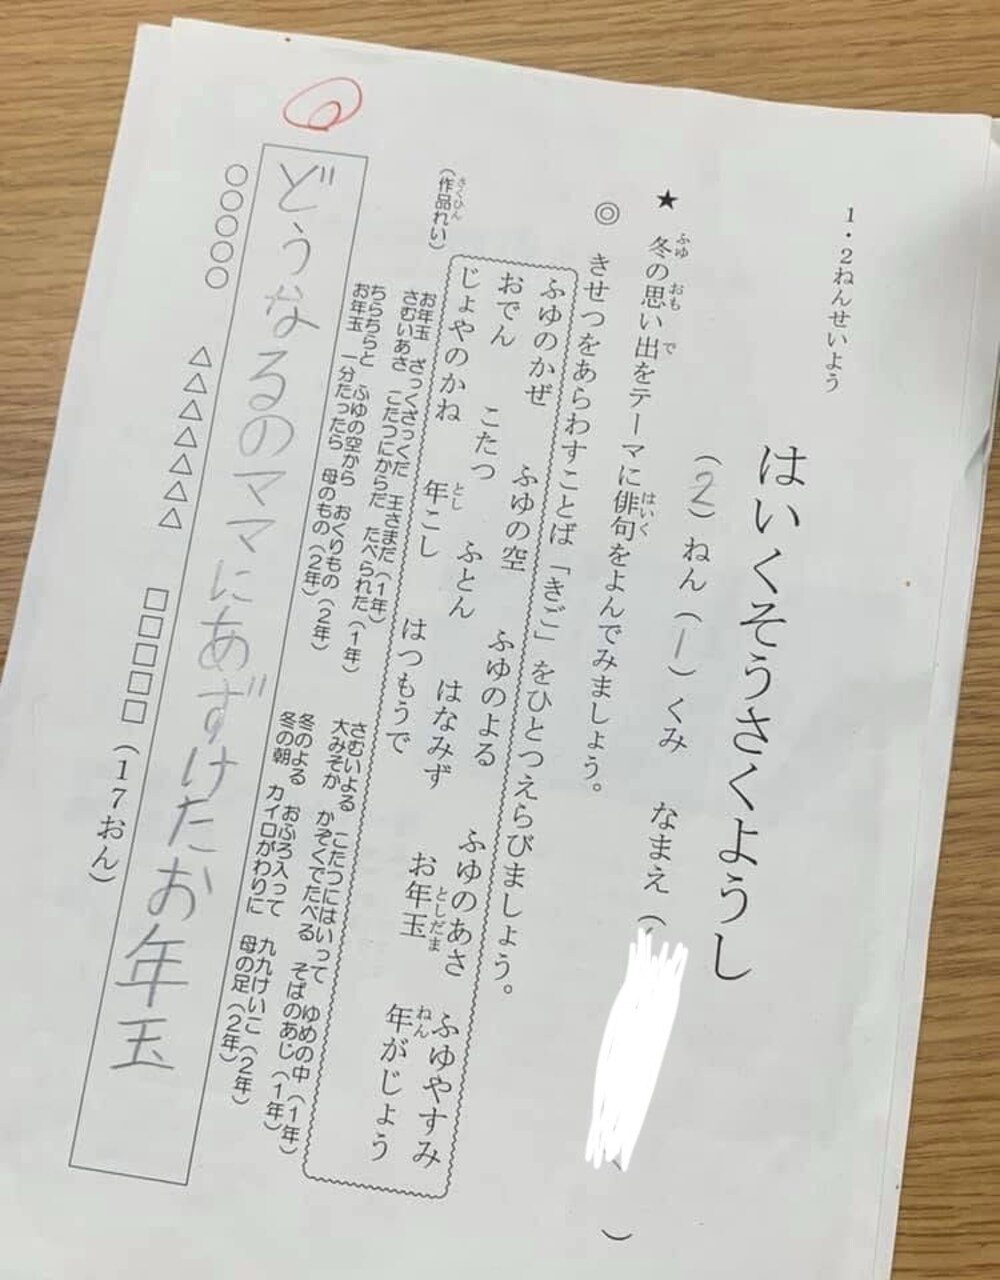 １・２ねんせいよう
はいくそうさくようし
（２）ねん（１）くみ　なまえ（　　　）
★　冬の思い出をテーマに俳句をよんでみましょう。
ふゆ　おも　で　はいく
◎　きせつをあらわすことば「きご」をひとつえらびましょう。
ふゆのかぜ　ふゆの空　ふゆのよる　ふゆのあさ　ふゆやすみ
おでん　こたつ　ふとん　はなみず　お年玉　年がじょう
としだま　ねん
じょやのかね　年こし　はつもうで
とし
（作品れい）
さくひん
お年玉　ざっくざっくだ　王さまだ（１年）
さむいあさ　こたつにからだ　たべられた（１年）
ちらちらと　ふゆの空から　おくりもの（２年）
お年玉　一分たったら　母のもの（２年）
さむいよる　こたつにはいって　ゆめの中（１年）
大みそか　かぞくでたべる　そばのあじ（１年）
冬のよる　おふろ入って　九九けいこ（２年）
冬の朝　カイロがわりに　母の足（２年）
どうなるのママにあずけたお年玉
○○○○○　△△△△△△△　□□□□□（１７おん）